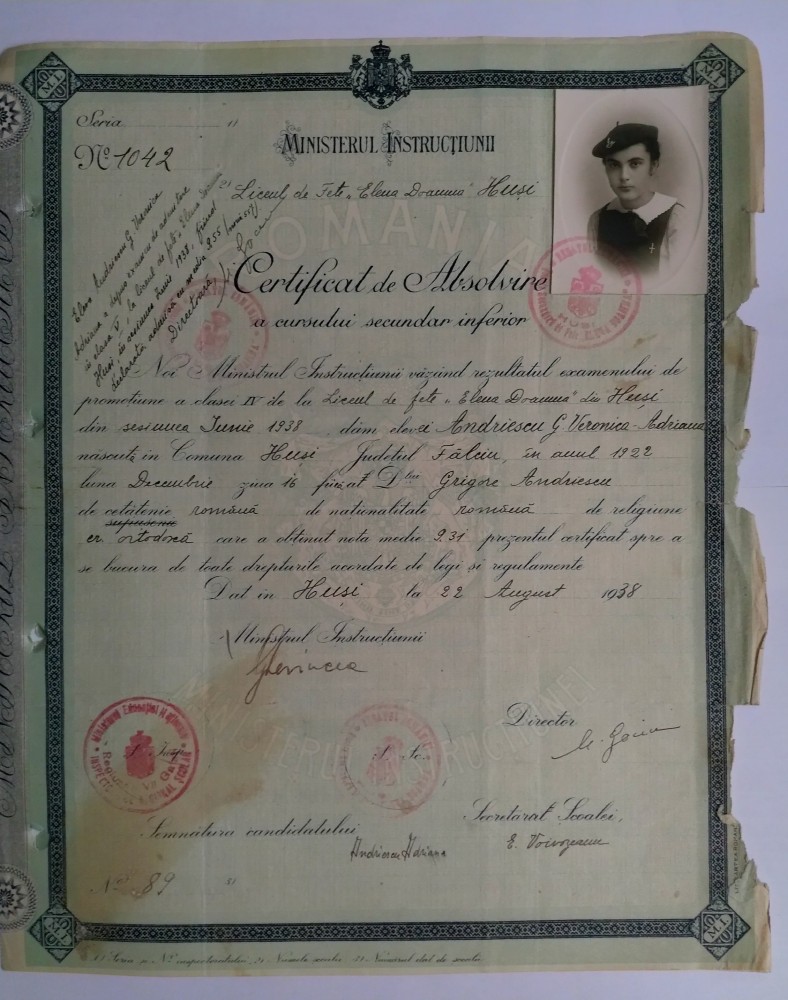 Seria 1)
№ 1042
MINISTERUL INSTRUCȚIUNII
2) Liceul de Fete „Elena Doamna" Huși
ROMANIA
Eleva Andriescu G. Veronica
Adriana a depus examen de admitere
în clasa V, la liceul de fete „Elena Doamna"
Huși, în sesiunea Iunie 1938, fiind
declarată admisă cu media 9.55
Directoare,
Certificat de Absolvire
a cursului secundar inferior
HUSI
Noi Ministrul Instrucțiunii văzând rezultatul examenului de
promoțiune a clasei IV de la Liceul de fete „Elena Doamna" din Huși
din sesiunea Iunie 1938 dăm elevei Andriescu G. Veronica-Adriana
născută în Comuna Huși Județul Fălciu, în anul 1922
luna Decembrie ziua 16 fiica Dlui Grigore Andriescu
de cetățenie română de naționalitate română de religiune
cr. ortodoxă care a obținut nota medie 9.31 prezentul certificat spre a
se bucura de toate drepturile acordate de legi și regulamente
Dat în Huși la 22 August 1938
Ministrul Instrucțiunii
Director
Secretarul Școalei,
Semnătura candidatului
Andriescu Adriana
№ 89 3)
1) Seria și № inspectoratului, 2) Numele școalei 3) Numărul dat de școală